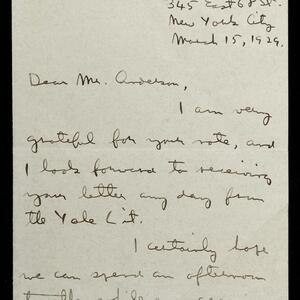 345 East 68 St.
New York City
March 15, 1929.
Dear Mr. Anderson,
I am very
grateful for your note, and
I look forward to receiving
your letter any day from
the Yale Lit.
I certainly hope
we can spend an afternoon